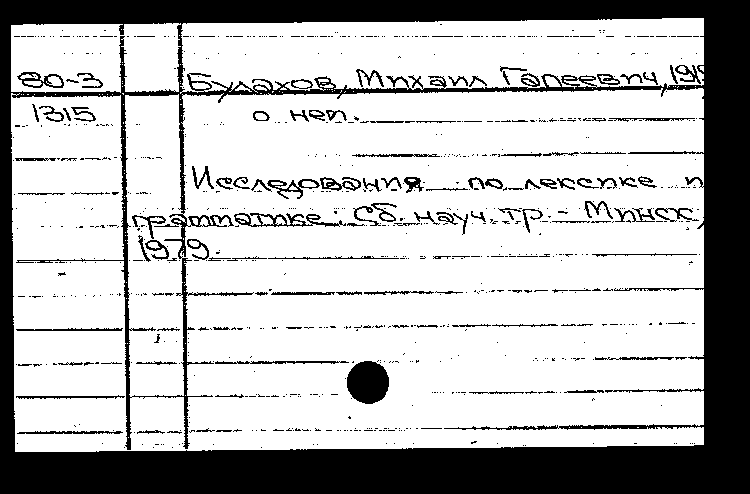 80-3 Булахов, Михаил Гапеевич, 1919
1315 о нем.
Исследования по лексике и
грамматике: Сб. науч. тр. - Минск,
1979.